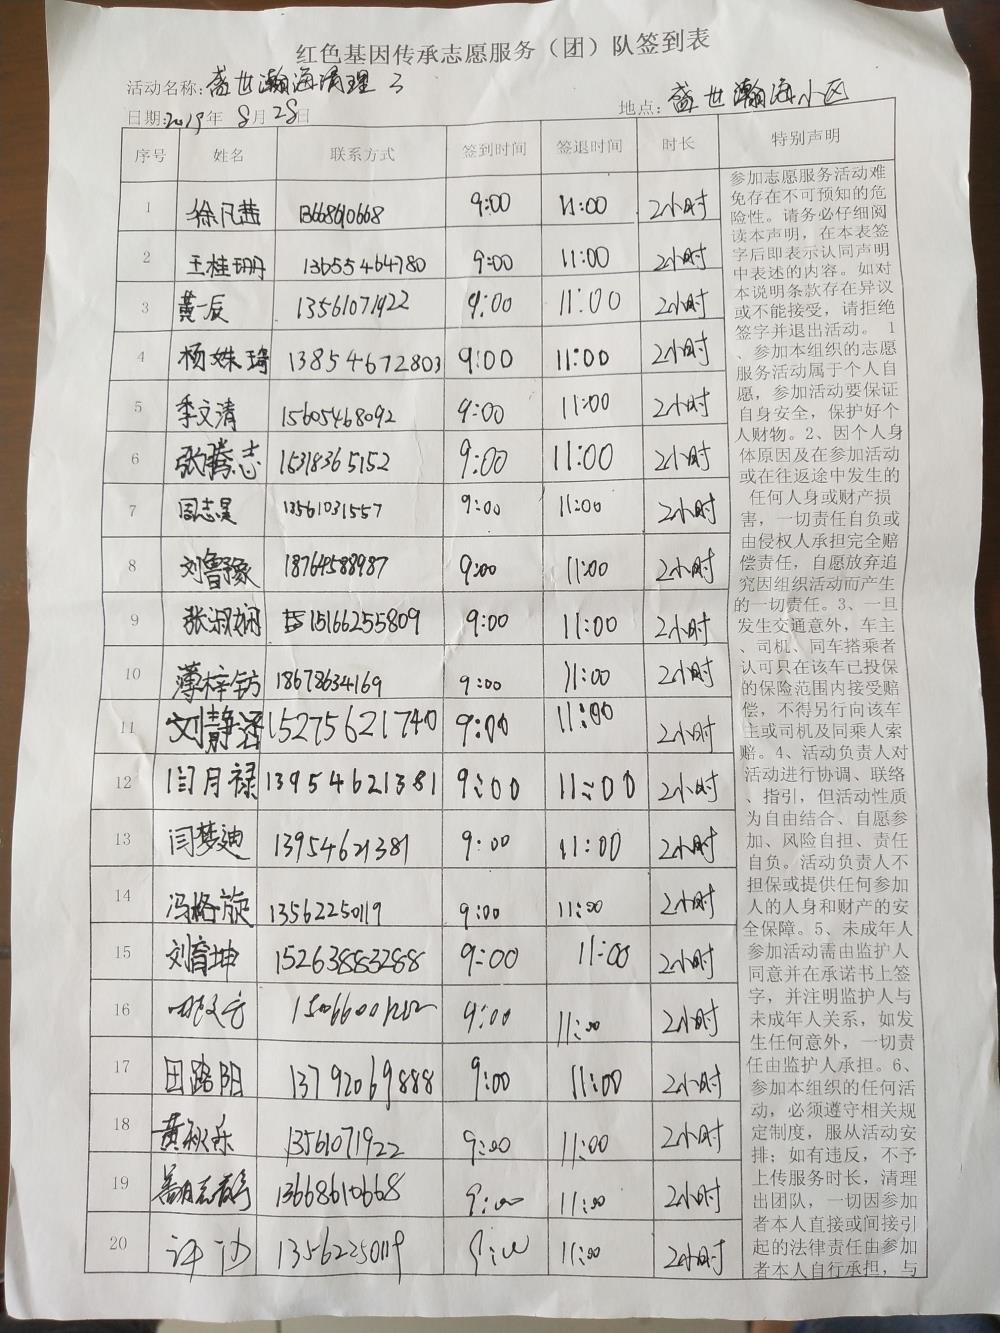 红色基因传承志愿服务（团）队签到表
活动名称：盛世瀚海清理 3
日期：2019年 8月 28日 地点：盛世瀚海小区
序号 姓名 联系方式 签到时间 签退时间 时长 特别声明
1 徐凡茜 13668610668 9:00 11:00 2小时
2 王桂珊 13655464780 9:00 11:00 2小时
3 黄一辰 13561071922 9:00 11:00 2小时
4 杨姝琦 13854672803 9:00 11:00 2小时
5 季文清 15605468092 9:00 11:00 2小时
6 张腾志 1531836 5152 9:00 11:00 2小时
7 周志昊 13561031557 9:00 11:00 2小时
8 刘鲁豫 18764588987 9:00 11:00 2小时
9 张淑娴 15166255809 9:00 11:00 2小时
10 薄梓钫 18678634169 9:00 11:00 2小时
11 刘静涵 15275621740 9:00 11:00 2小时
12 闫月禄 13954621381 9:00 11:00 2小时
13 闫梦迪 13954621381 9:00 11:00 2小时
14 冯格旋 13562250119 9:00 11:00 2小时
15 刘育坤 15263883288 9:00 11:00 2小时
16 9:00 11:00 2小时
17 田路阳 13792069888 9:00 11:00 2小时
18 黄秋乐 13561071922 9:00 11:00 2小时
19 13668610668 9:00 11:00 2小时
20 13562250119 9:00 11:00 2小时
参加志愿服务活动难
免存在不可预知的危
险性。请务必仔细阅
读本声明，在本表签
字后即表示认同声明
中表述的内容。如对
本说明条款存在异议
或不能接受，请拒绝
签字并退出活动。 1
、参加本组织的志愿
服务活动属于个人自
愿，参加活动要保证
自身安全，保护好个
人财物。2、因个人身
体原因及在参加活动
或在往返途中发生的
任何人身或财产损
害，一切责任自负或
由侵权人承担完全赔
偿责任，自愿放弃追
究因组织活动而产生
的一切责任。3、一旦
发生交通意外，车主
、司机、同车搭乘者
认可只在该车已投保
的保险范围内接受赔
偿，不得另行向该车
主或司机及同乘人索
赔。4、活动负责人对
活动进行协调、联络
、指引，但活动性质
为自由结合、自愿参
加、风险自担、责任
自负。活动负责人不
担保或提供任何参加
人的人身和财产的安
全保障。5、未成年人
参加活动需由监护人
同意并在承诺书上签
字，并注明监护人与
未成年人关系，如发
生任何意外，一切责
任由监护人承担。6、
参加本组织的任何活
动，必须遵守相关规
定制度，服从活动安
排；如有违反，不予
上传服务时长，清理
出团队，一切因参加
者本人直接或间接引
起的法律责任由参加
者本人自行承担，与